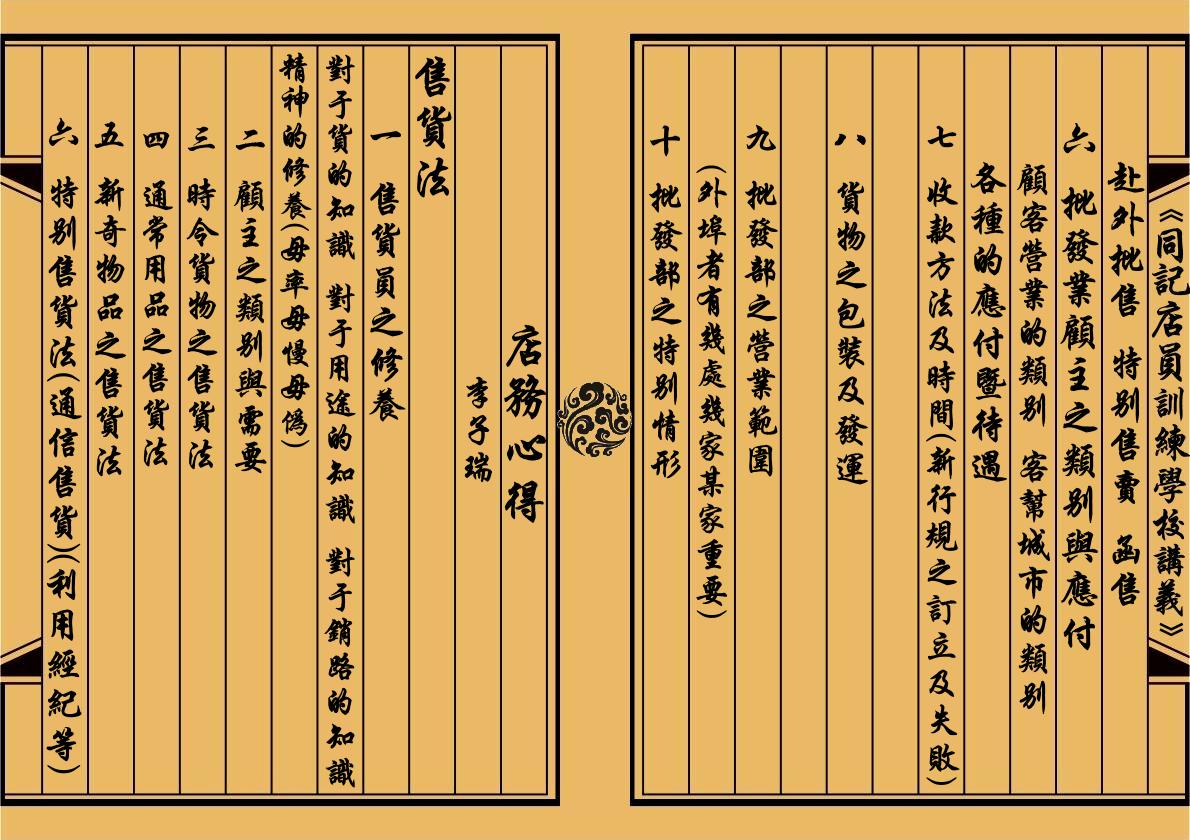 《同記店員訓練學校講義》
赴外批售 特別售賣 函售
六 批發業顧主之類別與應付
顧客營業的類別 客幫城市的類別
各種的應付暨待遇
七 收款方法及時間(新行規之訂立及失敗)
八 貨物之包裝及發運
九 批發部之營業範圍
(外埠者有幾處幾家某家重要)
十 批發部之特別情形
店務心得
李子瑞
售貨法
一 售貨員之修養
對于貨的知識 對于用途的知識 對于銷路的知識
精神的修養(毋率毋慢毋偽)
二 顧主之類別與需要
三 時令貨物之售貨法
四 通常用品之售貨法
五 新奇物品之售貨法
六 特別售貨法(通信售貨)(利用經紀等)